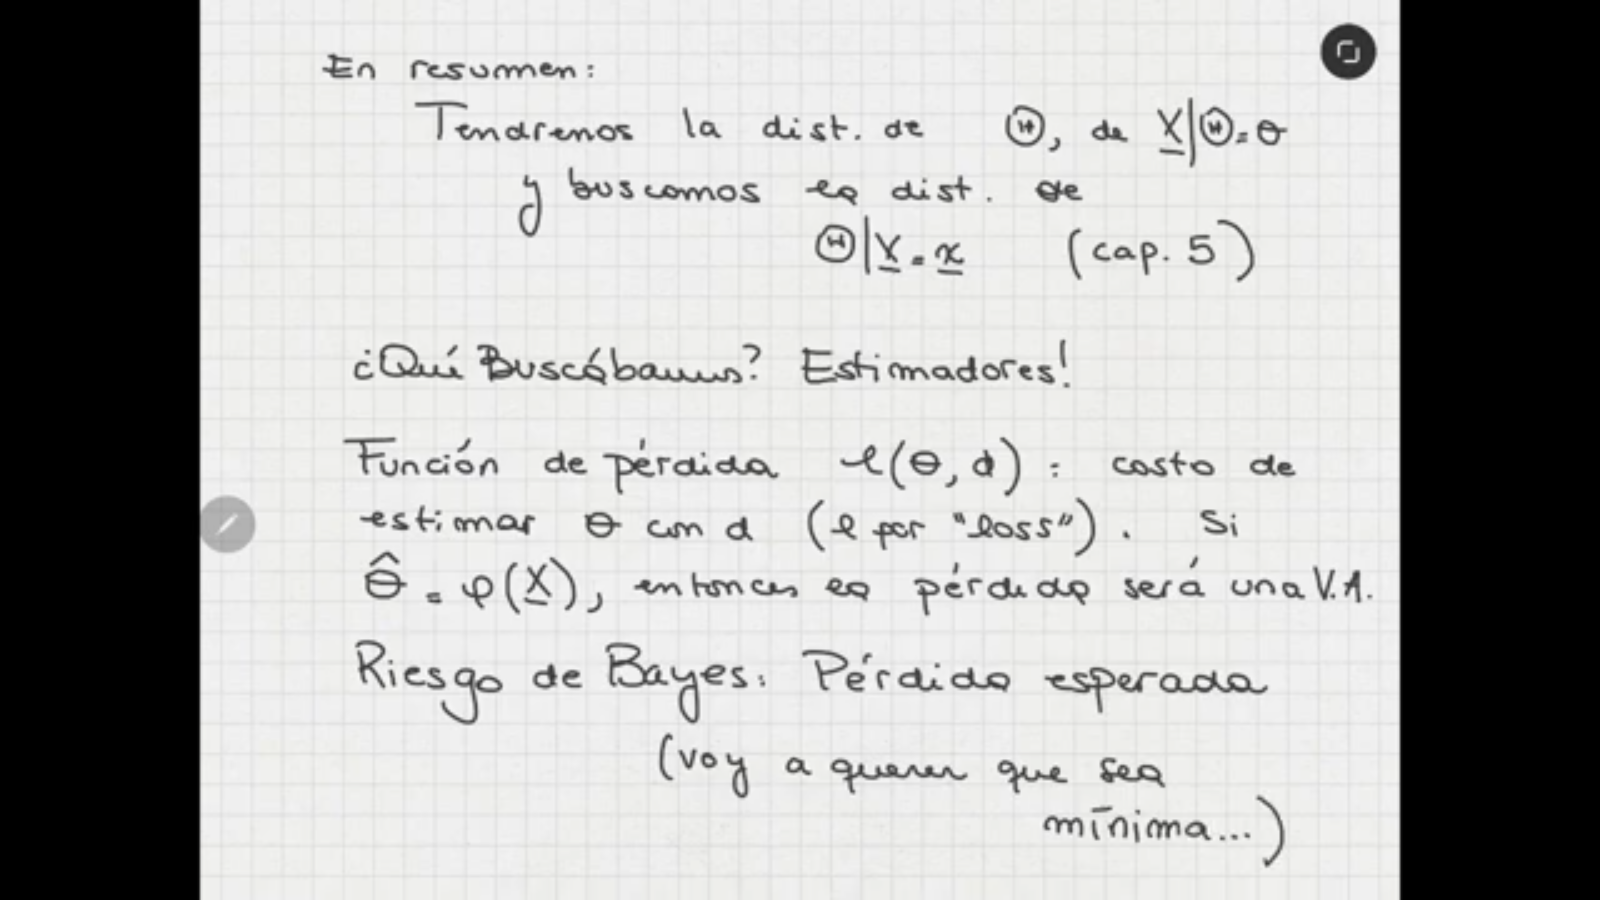 En resumen:
Tendremos la dist. de Ⓗ, de X|Ⓗ=θ
y buscamos la dist. de
Ⓗ|X=x (cap. 5)
¿Qué Buscábamos? Estimadores!
Función de pérdida ℓ(θ, d): costo de
estimar θ con d (ℓ por "loss"). Si
θ̂ = φ(X), entonces la pérdida será una V.A.
Riesgo de Bayes: Pérdida esperada
(voy a querer que sea
mínima...)